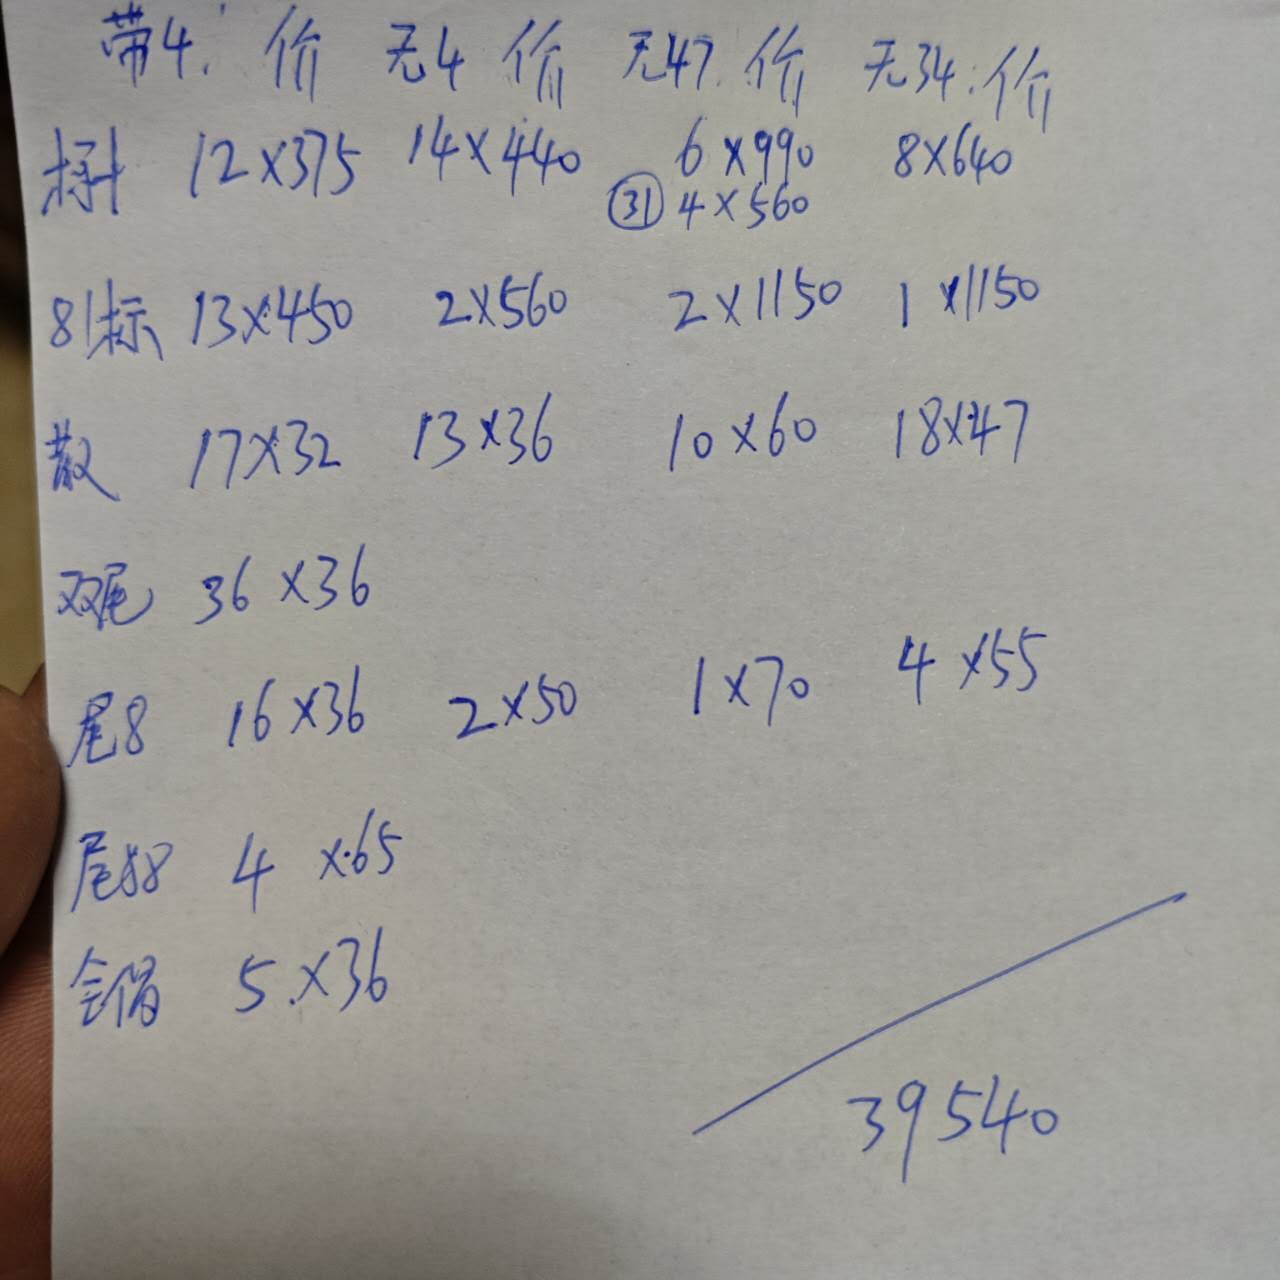 带4. 价 无4 价 无47 价 无34. 价
标十 12×375 14×440 6×990 8×640
㉛ 4×560
81标 13×450 2×560 2×1150 1×1150
散 17×32 13×36 10×60 18×47
双尾 36×36
尾8 16×36 2×50 1×70 4×55
尾88 4×65
5×36
39540